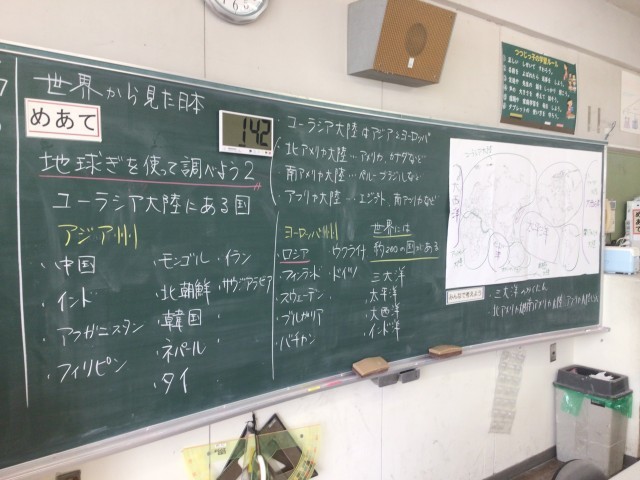 世界から見た日本
めあて
142
地球ぎを使って調べよう2
ユーラシア大陸にある国
アジア州
・中国
・インド
・アフガニスタン
・フィリピン
・モンゴル
・北朝鮮
・韓国
・ネパール
・タイ
・イラン
・サウジアラビア
・ユーラシア大陸はアジアとヨーロッパ
・北アメリカ大陸…アメリカ、カナダなど
・南アメリカ大陸…ペルー、ブラジルなど
・アフリカ大陸…エジプト、南アフリカなど
ヨーロッパ州
・ロシア
・フィンランド
・スウェーデン
・ブルガリア
・バチカン
・ウクライナ
・ドイツ
世界には
約200の国がある
三大洋
・太平洋
・大西洋
・インド洋
ユーラシア大陸
大西洋
太平洋
みんなで考えよう
・三大洋のかくにん
つつじっ子の学習ルール